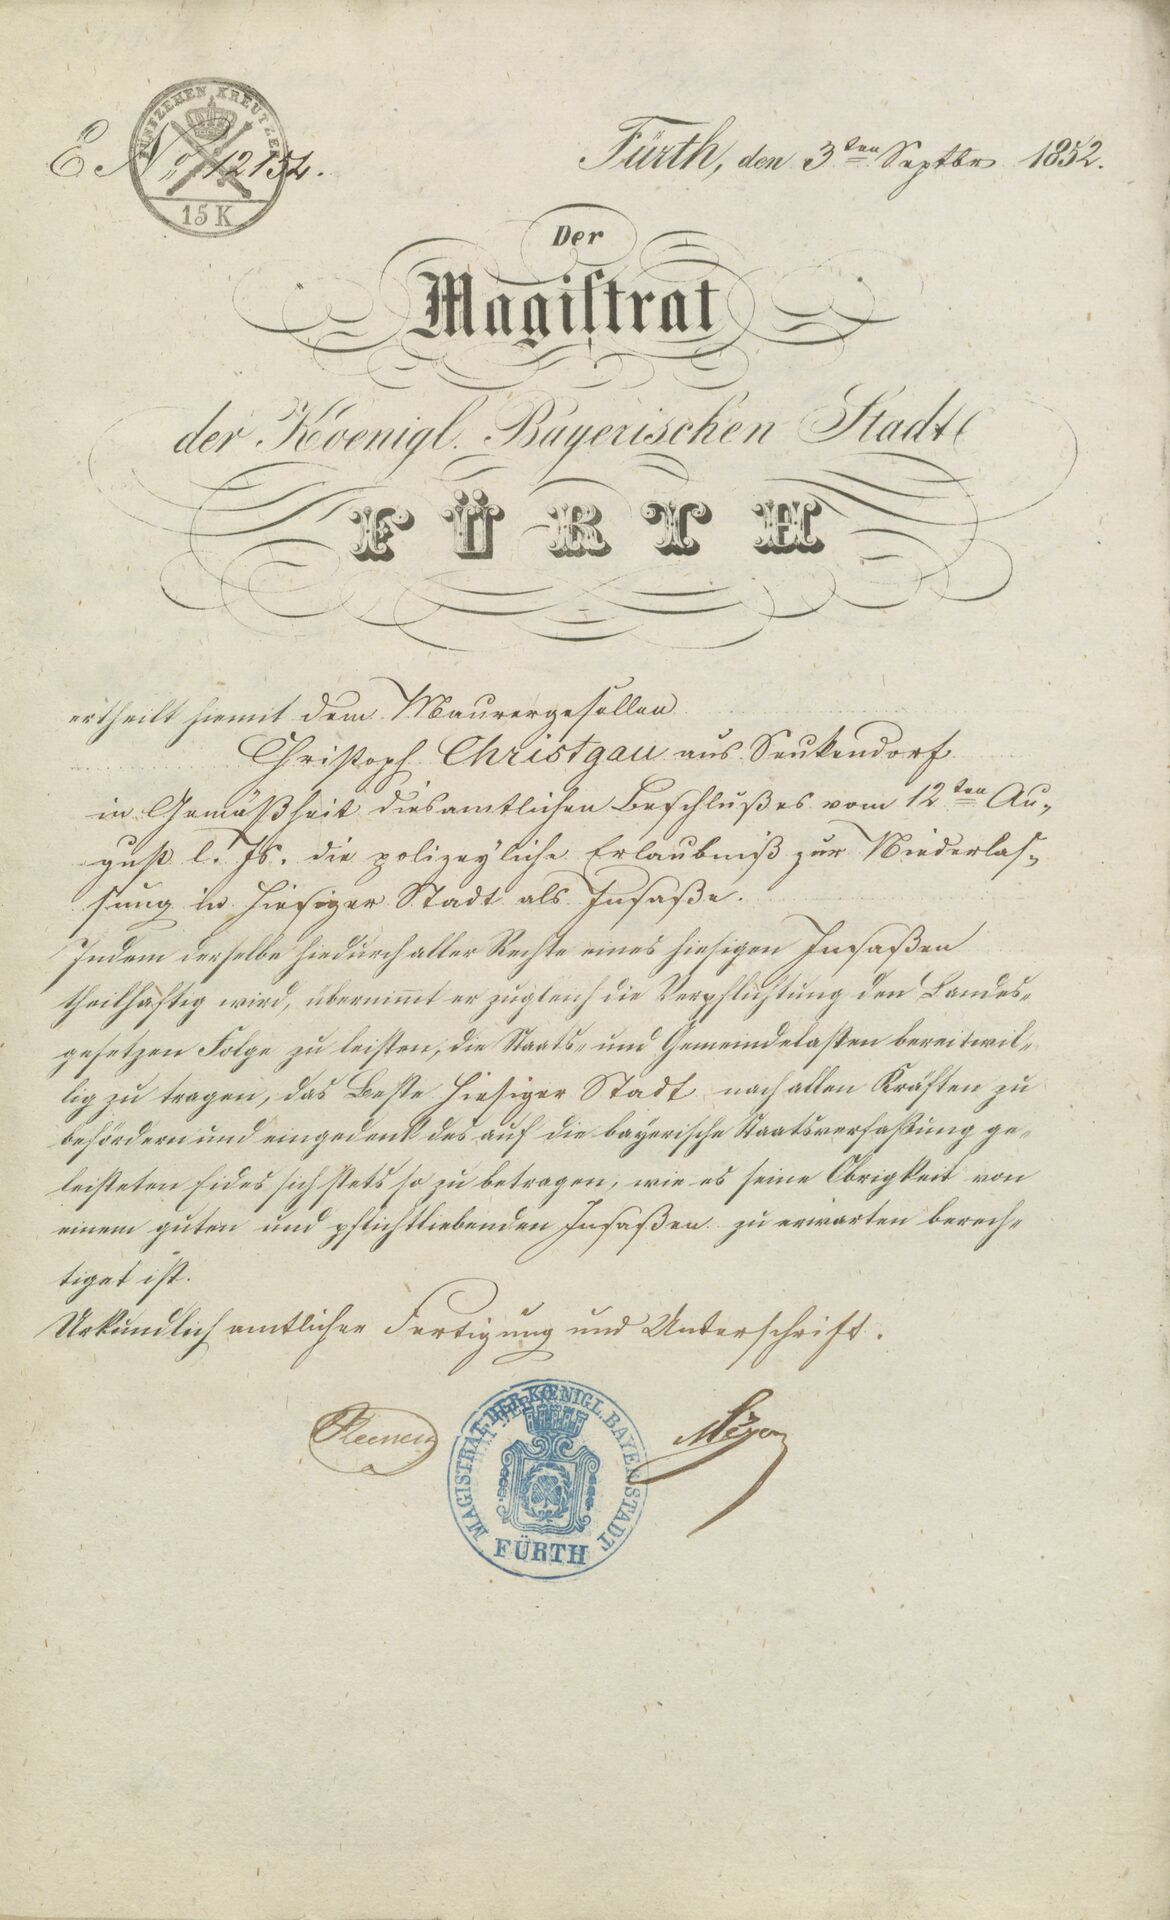 FÜNFZEHEN KREUTZER
15 K
E No 12154.
Fürth, den 3ten Septbr 1852.
Der
Magistrat
der Koenigl. Bayerischen Stadt
FÜRTH
ertheilt hiemit dem Maurergesellen
Christoph Christgau aus Seukendorf
in Gemäßheit diesamtlichen Beschlußes vom 12ten Au-
gust l. Js. die polizeyliche Erlaubniß zur Niederlas-
sung in hiesiger Stadt als Insaße.
Indem derselbe hiedurch aller Rechte eines hiesigen Insaßen
theilhaftig wird, übernimmt er zugleich die Verpflichtung den Landes-
gesetzen Folge zu leisten, die Staats- und Gemeindelasten bereitwil-
lig zu tragen, das Beste hiesiger Stadt nach allen Kräften zu
befördern und eingedenk des auf die bayerische Staatsverfaßung ge-
leisteten Eides sich stets so zu betragen, wie es seine Obrigkeit von
einem guten und pflichtliebenden Insaßen zu erwarten berech-
tiget ist.
Urkundlich amtlicher Fertigung und Unterschrift.
MAGISTRAT DER KŒNIGL. BAYER. STADT
FÜRTH